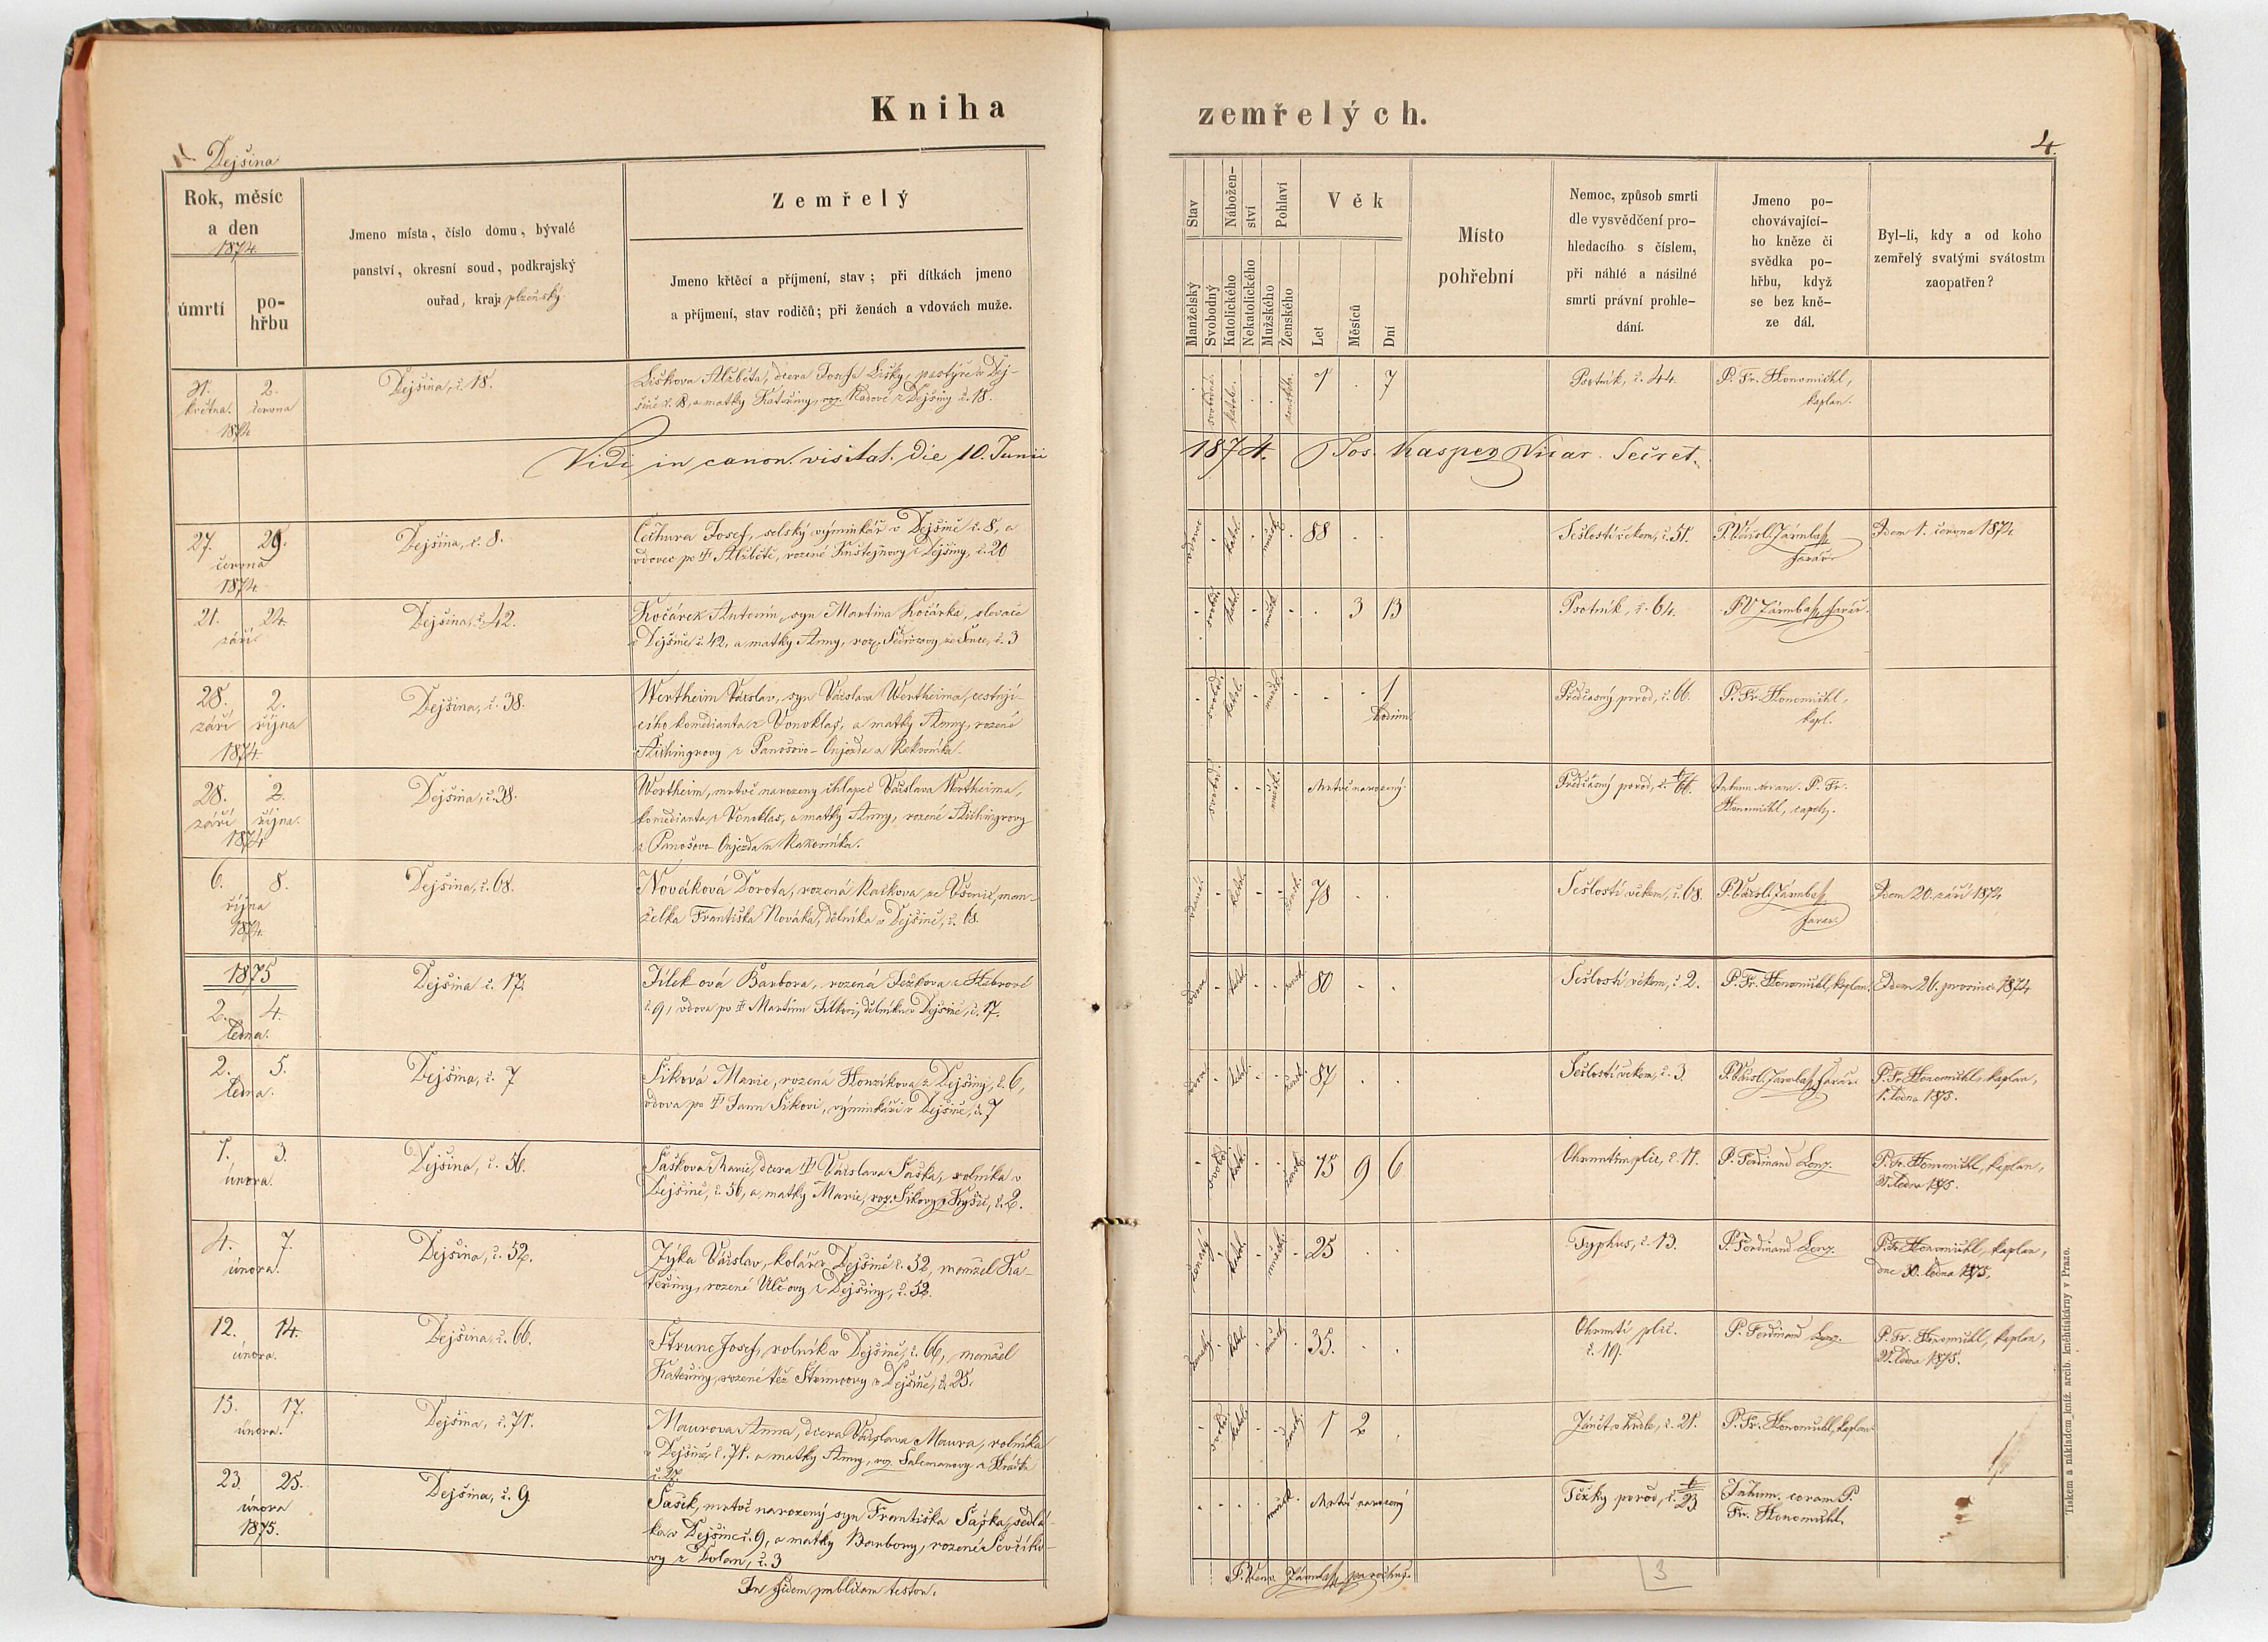 Kniha
zemřelých.
4.
Dejšina
Rok, měsíc
a den
1874.
úmrtí
po-
hřbu
Jmeno místa, číslo domu, bývalé
panství, okresní soud, podkrajský
ouřad, kraj: plzeňský
Zemřelý
Jmeno křtěcí a příjmení, stav; při dítkách jmeno
a příjmení, stav rodičů; při ženách a vdovách muže.
Stav
Nábožen-
ství
Pohlaví
Věk
Manželský
Svobodný
Katolického
Nekatolického
Mužského
Ženského
Let
Měsíců
Dní
Místo
pohřební
Nemoc, způsob smrti
dle vysvědčení pro-
hledacího s číslem,
při náhlé a násilné
smrti právní prohle-
dání.
Jmeno po-
chovávající-
ho kněze či
svědka po-
hřbu, když
se bez kně-
ze dál.
Byl-li, kdy a od koho
zemřelý svatými svátostmi
zaopatřen?
31. 2.
května. června
1874
Dejšina, č. 18.
Liškova Alžběta, dcera Josefa Lišky, pastýře v Dej-
šině č. 18, a matky Kateřiny, roz. z Dejšiny č. 18.
1 . 7
Psotník, č. 44.
P. Fr. Honomichl,
kaplan.
Vidi in canon. visitat. die 10. Junii
1874. Jos. Kasper Vicar. Secret.
27. 29.
června
1874.
Dejšina, č. 8.
Čechura Josef, selský výminkář v Dejšině č. 8, a
vdovec po † Alžbětě, rozené z Dejšiny, č. 20
88 . .
Sešlostí věkem, č. 51.
P. Václ. Järmlass
farář.
Idem 1. června 1874.
21. 24.
září
Dejšina, č. 42.
Kočárek Antonín, syn Martina Kočárka, slevače
v Dejšině, č. 42, a matky Anny, roz. ze Sence, č. 3
. 3 13
Psotník, č. 64.
P. V. Järmlass, farář.
28. 2.
září října
1874.
Dejšina, č. 38.
Wertheim Václav, syn Václava Wertheima, cestují-
cího komedianta z Vonoklas, a matky Anny, rozené
z Panošovo-Oujezda u Rakovníka.
. . 1
hodinu.
Předčasný porod, č. 66.
P. Fr. Honomichl,
kapl.
28. 2.
září října.
1874
Dejšina, č. 38.
Wertheim, mrtvě narozený chlapec Václava Wertheima,
komedianta z Vonoklas, a matky Anny, rozené
z Panošovo Oujezda u Rakovníka.
Mrtvě narozený.
Předčasný porod, č. 66.
Inhum. coram. P. Fr.
Honomichl,
6. 8.
října
1874.
Dejšina, č. 68.
Nováková Dorota, rozená ze Všenic, man-
želka Františka Nováka, dělníka v Dejšině, č. 68.
78 . .
Sešlostí věkem, č. 68.
P. Václ. Järmlass
farář.
Idem 20. září 1874
1875
2. 4.
ledna.
Dejšina č. 17.
Jílek ová Barbora, rozená
č. 9, vdova po † Martinu Jílkovi, dělníku v Dejšině, č. 17.
80 . .
Sešlostí věkem, č. 2.
P. Fr. Honomichl, kaplan.
Idem 26. prosince 1874
2. 5.
ledna.
Dejšina, č. 7
Siková Marie, rozená Honzíkova z Dejšiny, č. 6,
vdova po † Janu Sikovi, výminkáři v Dejšině, č. 7
87 . .
Sešlostí věkem, č. 3.
P. Václ. Järmlass, farář.
P. Fr. Honomichl, kaplan,
1. ledna 1875.
1. 3.
února.
Dejšina, č. 56.
Saškova Marie, dcera † Václava Saška, rolníka v
Dejšině, č. 56, a matky Marie, roz. Sikovy z Kyšic, č. 2.
75 9 6
Ochrnutím plic, č. 11.
P. Ferdinand Lenz.
P. Fr. Honomichl, kaplan,
31. ledna 1875.
4. 7.
února.
Dejšina, č. 52.
Jýka Václav, kolář v Dejšině č. 52, manžel Ka-
teřiny, rozené Ulčovy z Dejšiny, č. 52.
25 . .
Typhus, č. 13.
P. Ferdinand Lenz.
P. Fr. Honomichl, kaplan,
dne 30. ledna 1875.
12. 14.
února.
Dejšina, č. 66.
Strunc Josef, rolník v Dejšině, č. 66, manžel
Kateřiny, rozené též Struncovy v Dejšině, č. 25.
35. . .
Ochrnutí plic.
č. 19.
P. Ferdinand Lenz.
P. Fr. Honomichl, kaplan,
21. ledna 1875.
15. 17.
února.
Dejšina, č. 71.
Maurova Anna, dcera Václava Maura, rolníka
v Dejšině, č. 71. a matky Anny, roz. Salcmanovy z Hrádku
č. 27.
1 2 .
Zánět v krdle, č. 21.
P. Fr. Honomichl, kaplan
23. 25.
února
1875.
Dejšina, č. 9.
Sašek, mrtvě narozený syn Františka Saška, sedlá-
ka v Dejšině č. 9, a matky Barbory, rozené Ševčíko-
vy z Dolan, č. 3
Mrtvě narozený
Těžký porod, č. 23
Inhum. coram P.
Fr. Honomichl.
In fidem publicam testor.
P. Venc. Järmlass, parochus.
3
Tiskem a nákladem kníž. arcib. knihtiskárny v Praze.